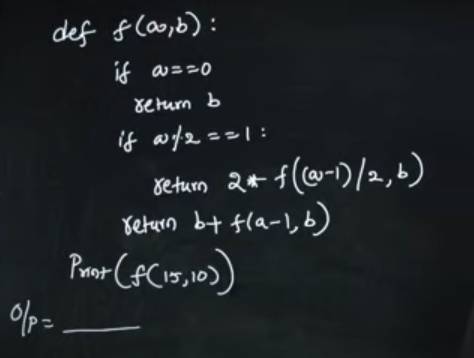 def f(a,b):
if a==0
return b
if a%2==1:
return 2* f((a-1)/2,b)
return b+ f(a-1,b)
Print(f(15,10))
O/P= ______